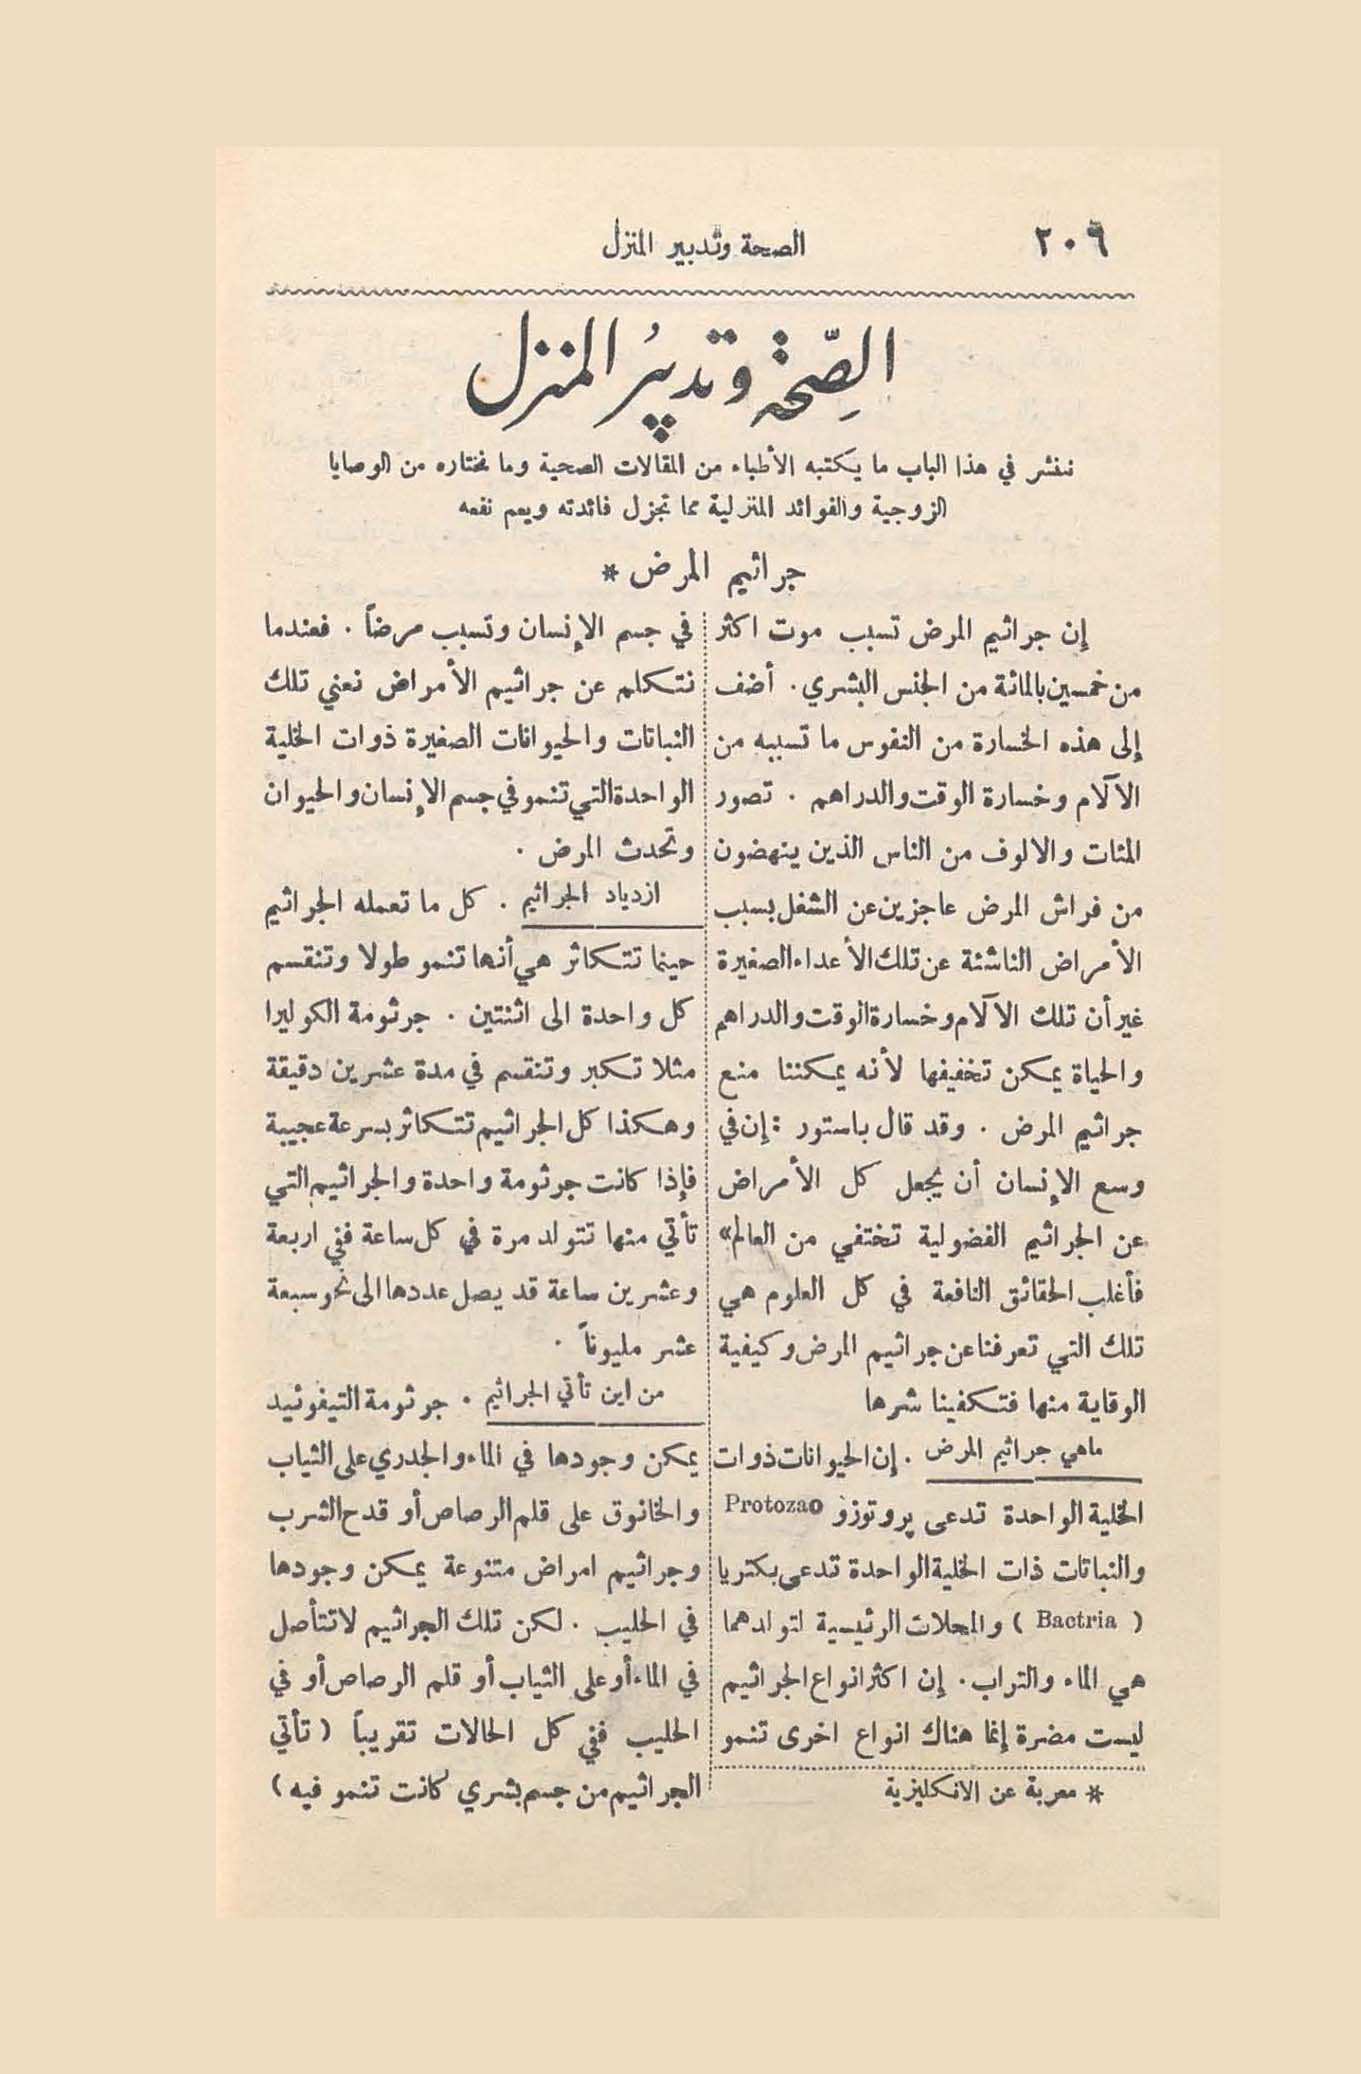 ٢٠٦
الصحة وتدبير المنزل
الصِّحة وتدبيرُ المنزل
ننشر في هذا الباب ما يكتبه الأطباء من المقالات الصحية وما نختاره من الوصايا
الزوجية والفوائد المنزلية مما تجزل فائدته ويعم نفعه
جراثيم المرض *
إن جراثيم المرض تسبب موت اكثر
من خمسين بالمائة من الجنس البشري. أضف
إلى هذه الخسارة من النفوس ما تسببه من
الآلام وخسارة الوقت والدراهم . تصور
المئات والالوف من الناس الذين ينهضون
من فراش المرض عاجزين عن الشغل بسبب
الأمراض الناشئة عن تلك الأعداء الصغيرة
غير أن تلك الآلام وخسارة الوقت والدراهم
والحياة يمكن تخفيفها لأنه يمكننا منع
جراثيم المرض . وقد قال باستور : إن في
وسع الإنسان أن يجعل كل الأمراض
عن الجراثيم الفضولية تختفي من العالم»
فأغلب الحقائق النافعة في كل العلوم هي
تلك التي تعرفنا عن جراثيم المرض وكيفية
الوقاية منها فتكفينا شرها
ماهي جراثيم المرض . إن الحيوانات ذوات
الخلية الواحدة تدعى پروتوزو Protozao
والنباتات ذات الخلية الواحدة تدعى بكتريا
( Bactria ) والمحلات الرئيسية لتولدهما
هي الماء والتراب. إن اكثر انواع الجراثيم
ليست مضرة إنما هناك انواع اخرى تنمو
* معربة عن الانكليزية
في جسم الإنسان وتسبب مرضاً . فعندما
نتكلم عن جراثيم الأمراض نعني تلك
النباتات والحيوانات الصغيرة ذوات الخلية
الواحدة التي تنمو في جسم الإنسان والحيوان
وتحدث المرض .
ازدياد الجراثيم . كل ما تعمله الجراثيم
حينما تتكاثر هي أنها تنمو طولا وتنقسم
كل واحدة الى اثنتين . جرثومة الكوليرا
مثلا تكبر وتنقسم في مدة عشرين دقيقة
وهكذا كل الجراثيم تتكاثر بسرعة عجيبة
فإذا كانت جرثومة واحدة والجراثيم التي
تأتي منها تتولد مرة في كل ساعة ففي اربعة
وعشرين ساعة قد يصل عددها الى نحو سبعة
عشر مليوناً .
من اين تأتي الجراثيم . جرثومة التيفوئيد
يمكن وجودها في الماء والجدري على الثياب
والخانوق على قلم الرصاص أو قدح الشرب
وجراثيم امراض متنوعة يمكن وجودها
في الحليب . لكن تلك الجراثيم لا تتأصل
في الماء أو على الثياب أو قلم الرصاص أو في
الحليب ففي كل الحالات تقريباً ( تأتي
الجراثيم من جسم بشري كانت تنمو فيه )